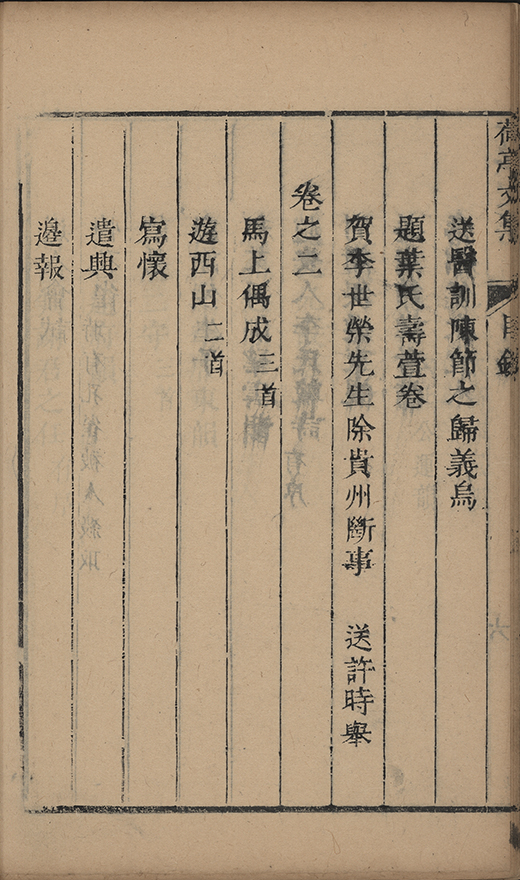 荷亭文集 目錄
送醫訓陳節之歸義烏
題葉氏壽萱卷
賀李世榮先生除貴州斷事 送許時舉
卷之二
馬上偶成三首
遊西山二首
寫懷
遣興
邊報